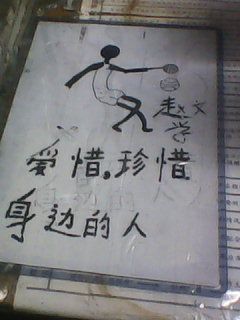 赵文
学
爱惜,珍惜
身边的人